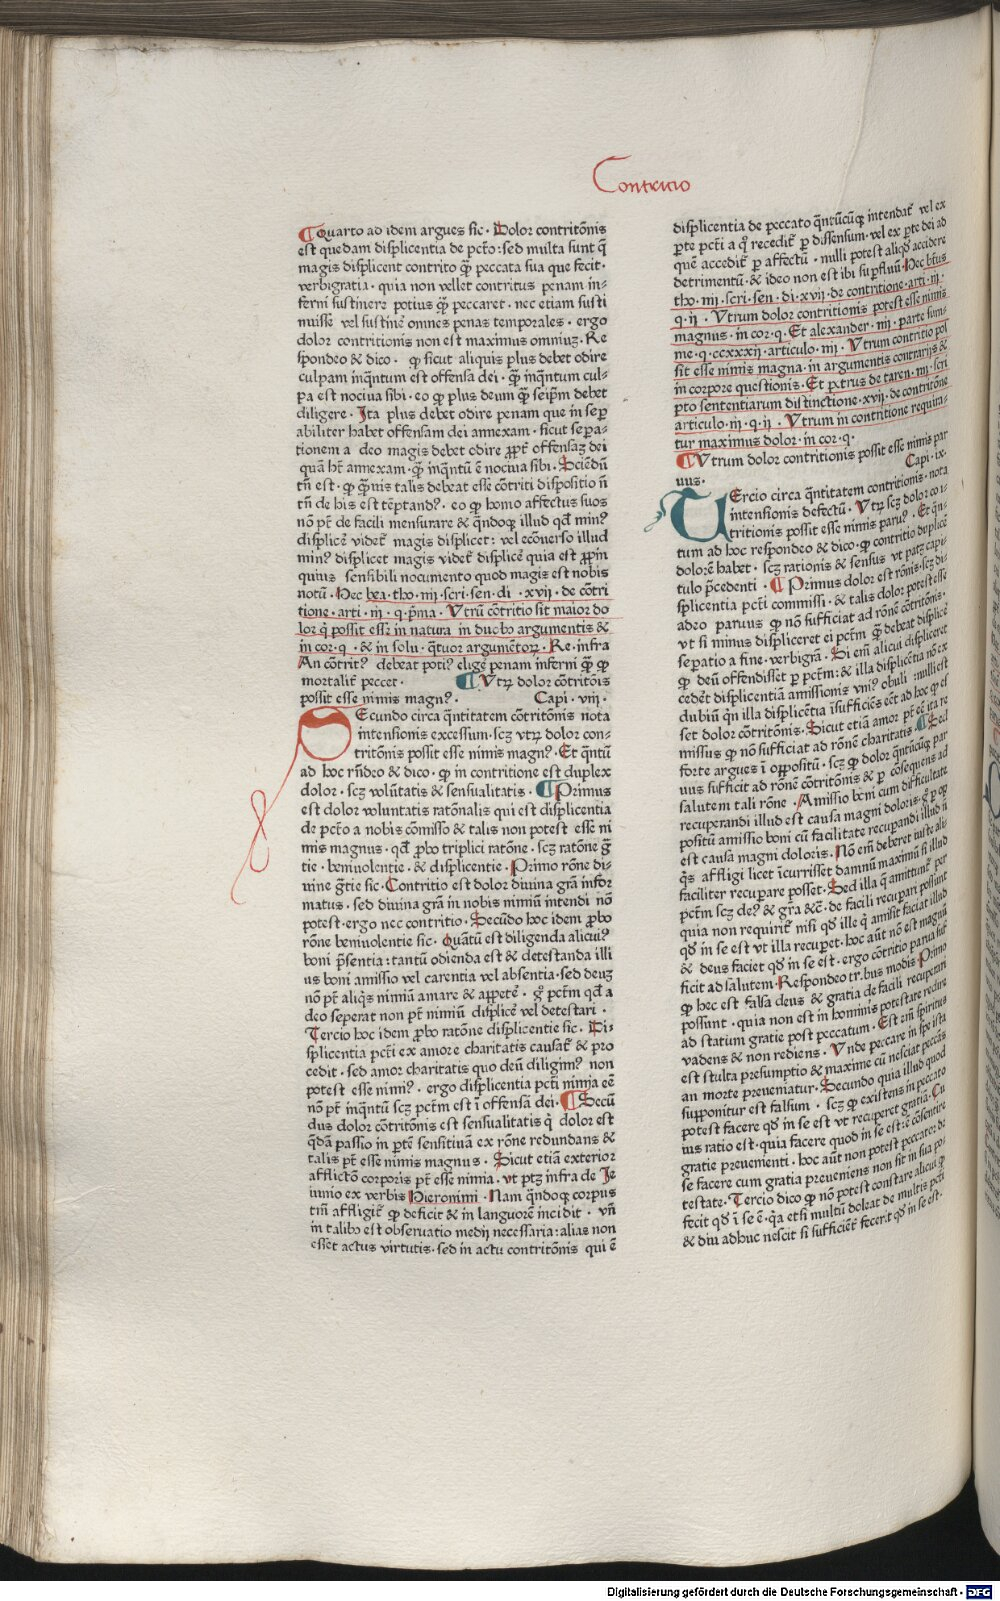 Contricio
¶Quarto ad idem argues sic · Dolor contritõnis
est quedam displicentia de pctõ : sed multa sunt q̃
magis displicent contrito q̃ peccata sua que fecit ·
verbigratia · quia non vellet contritus penam in-
ferni sustinere potius q̃ peccare · nec etiam susti
nuisse vel sustinẽ omnes penas temporales · ergo
dolor contritionis non est maximus omniuꝫ · Re
spondeo & dico · ꝙ sicut aliquis plus debet odire
culpam inq̃ntum est offensa dei · q̃ inq̃ntum cul-
pa est nociua sibi · eo ꝙ plus deum q̃ seip̃m debet
diligere · Ita plus debet odire penam que insep
abiliter habet offensam dei annexam · sicut sepa-
tionem a deo magis debet odire ꝓpt̃ offensaꝫ dei
quã hꝫ annexam · q̃ inq̃ntũ ẽ nociua sibi · Sciẽdũ
tñ est · ꝙ q̃uis talis debeat esse cõtriti dispositio ñ
tñ de his est tẽptandꝰ · eo ꝙ homo affectus suos
nõ pt̃ de facili mensurare & q̃ndoqꝫ illud qd̃ minꝰ
displicẽ videt̃ magis displicet : vel ecõuerso illud
minꝰ displicet magis videt̃ displicẽ quia est ꝓpin
quius sensibili nocumento quod magis est nobis
notũ · Hec bea · tho · iiij · scri · sen · di · xvij · de cõtri
tione · arti · iij · q · p̃ma · Vtrũ cõtritio sit maior do
lor q̃ possit esse in natura in duobꝰ argumentis &
in cor · q · & in solu · q̃tuor argumẽtoꝝ · Re · infra
An cõtritꝰ debeat potiꝰ eligẽ penam inferni q̃ ꝙ
mortalit̃ peccet · ¶Vtꝝ dolor cõtritõis
possit esse nimis magnꝰ · Capi · viij ·
SEcundo circa q̃ntitatem cõtritõnis nota
intensionis excessum · scꝫ vtꝝ dolor con-
tritõnis possit esse nimis magnꝰ · Et q̃ntũ
ad hoc rñdeo & dico · ꝙ in contritione est duplex
dolor · scꝫ volũtatis & sensualitatis · ¶Primus
est dolor voluntatis ratõnalis qui est displicentia
de pctõ a nobis cõmisso & talis non potest esse ni
mis magnus · qd̃ ꝓbo triplici ratõne · scꝫ ratõne g̃
tie · beniuolentie · & displicentie · Primo rõne di-
uine g̃tie sic · Contritio est dolor diuina grã infor
matus · sed diuina grã in nobis nimiũ intendi nõ
potest · ergo nec contritio · Secũdo hoc idem ꝓbo
rõne beniuolentie sic · Quãtũ est diligenda alicuiꝰ
boni p̃sentia : tantũ odienda est & detestanda illi
us boni amissio vel carentia vel absentia · sed deuꝫ
nõ pt̃ aliq̃s nimiũ amare & appetẽ · gͦ pctm̃ qd̃ a
deo seperat non pt̃ nimiũ displicẽ vel detestari ·
Tercio hoc idem ꝓbo ratõne displicentie sic · Dis
splicentia pcti ex amore charitatis causat̃ & pro
cedit · sed amor charitatis quo deũ diligimꝰ non
potest esse nimiꝰ · ergo displicentia pcti nimia eẽ
nõ pt̃ inq̃ntũ scꝫ pctm̃ est ĩ offensã dei · ¶Secũ
dus dolor cõtritõnis est sensualitatis q̃ dolor est
q̃dã passio in ptẽ sensitiuã ex rõne redundans &
talis pt̃ esse nimis magnus · Sicut etiã exterior
afflictõ corporis pt̃ esse nimia · vt ptꝫ infra de Ie
iunio ex verbis Hieronimi · Nam q̃ndoqꝫ corpus
tm̃ affligit̃ ꝙ deficit & in languorẽ incidit · vñ
in talibꝰ est obseruatio medij necessaria : alias non
esset actus virtutis · sed in actu contritõnis qui ẽ
displicentia de peccato q̃ntũcũqꝫ intendat̃ vel ex
pte pcti a qͦ recedit̃ p dissensum · vel ex pte dei ad
quẽ accedit̃ p affectũ · nulli potest aliqd̃ accidere
detrimentũ · & ideo non est ibi supfluũ · Hec btũs
tho · iiij · scri · sen · di · xvij · de contritione · arti · iij ·
q · ij · Vtrum dolor contritionis potest esse nimis
magnus · in cor · q · Et alexander · iiij · parte sum-
me · q · ccxxxij · articulo · iiij · Vtrum contritio pos
sit esse nimis magna · in argumentis contrarijs &
in corpore questionis · Et petrus de taren · iiij · scri
pto sententiarum distinctione · xvij · de contritõne
articulo · iij · q · ij · Vtrum in contritione requira-
tur maximus dolor · in cor · q ·
¶Vtrum dolor contritionis possit esse nimis par
uus · Capi · ix ·
TErcio circa q̃ntitatem contritionis · nota
intensionis defectũ · Vtꝝ scꝫ dolor co
tritionis possit esse nimis paruꝰ · Et q̃n-
tum ad hoc respondeo & dico · ꝙ contritio duplicẽ
dolorẽ habet · scꝫ rationis & sensus vt patꝫ capi-
tulo p̃cedenti · ¶Primus dolor est rõnis · scꝫ di-
splicentia pcti commissi · & talis dolor potest esse
adeo paruus ꝙ nõ sufficiat ad rõnẽ cõtritõnis ·
vt si minus displiceret ei pctm̃ q̃ debeat displicẽ
seperatio a fine · verbigrã · Si em̃ alicui displiceret
ꝙ deũ offendisset p pctm̃ : & illa displicẽtia nõ ex
cedẽt displicentiã amissionis vniꝰ obuli : nulli est
dubiũ qn̄ illa displicẽtia ĩsufficiẽs eẽt ad hoc ꝙ es
set dolor contritõnis · Sicut etiã amor pt̃ eẽ ita re
missus ꝙ nõ sufficiat ad rõnẽ charitatis ¶Sed
forte argues ĩ oppositũ · scꝫ ꝙ dolor q̃ntũcũqꝫ par
uus sufficit ad rõnẽ cõtritõnis & p cõsequens ad
salutem tali rõne · Amissio boni cum difficultate
recuperandi illud est causa magni doloris · gͦ p op
positũ amissio boni cũ facilitate recupandi illud ñ
est causa magni doloris · Nõ em̃ deberet iuste ali-
q̃s affligi licet ĩcurrisset damnũ maximũ si illud
faciliter recupare posset · Sed illa q̃ amittunt̃ per
pctm̃ scꝫ deꝰ & gr̃a &c̃ · de facili recupari possunt
quia non requirit̃ nisi qd̃ ille q̃ amisit faciat illud
qd̃ in se est vt illa recupet · hoc aũt nõ est magnũ
& deus faciet qd̃ in se est · ergo cõtritio parua suf
ficit ad salutem · Respondeo tribus modis Primo
ꝙ hec est falsa deus & gratia de facili recuperari
possunt · quia non est in hominis potestare redire
ad statum gratie post peccatum · Est em̃ spiritus
vadens & non rediens · Vnde peccare in spe ista
est stulta presumptio & maxime cũ nesciat peccãs
an morte preueniatur · Secundo quia illud quod
supponitur est falsum · scꝫ ꝙ existens in peccato
potest facere qd̃ in se est vt recuperet gratiã · Cu
ius ratio est · quia facere quod in se est : ẽ cõsentire
gratie preuenienti · hoc aũt non potest peccator de
se facere cum gratia preueniens non sit in sua po-
testate · Tercio dico ꝙ nõ potest constare alicui ꝙ
fecit qd̃ ĩ se ẽ · q̃a etsi multũ doleat de multis pctis
& diu adhuc nescit si sufficient̃ fecerit qd̃ in se est ·
Digitalisierung gefördert durch die Deutsche Forschungsgemeinschaft - DFG